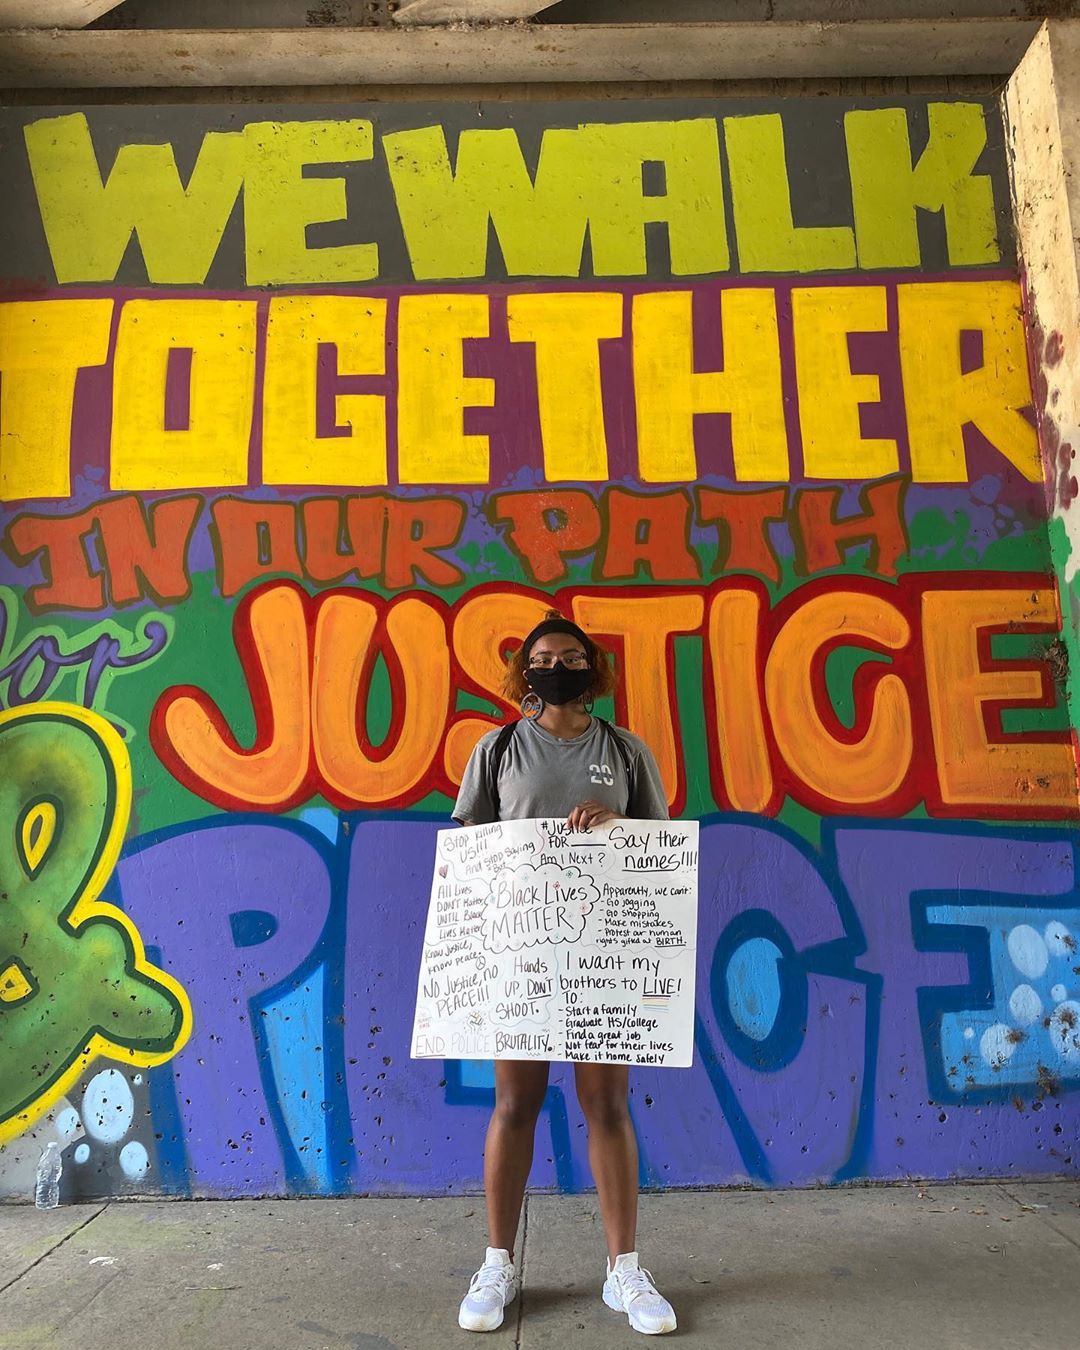 WE WALK
TOGETHER
IN OUR PATH
for JUSTICE
& PEACE
20
Stop killing
US!!!
And Stop Saying
But
#Justice
FOR
Am I Next?
Say their
names!!!!
All Lives
DON'T Matter
UNTIL Black
Lives Matter
Black Lives
MATTER
Apparently, we can't:
- Go jogging
- Go Shopping
- Make mistakes
- Protest our human
rights gifted at BIRTH.
Know Justice,
Know peace.
NO Justice, NO
PEACE!!!
Hands
UP, DON'T
SHOOT.
I want my
brothers to LIVE!
To:
- Start a family
- Graduate HS/College
- Find a great job
- Not fear for their lives
- Make it home safely
END POLICE BRUTALITY.